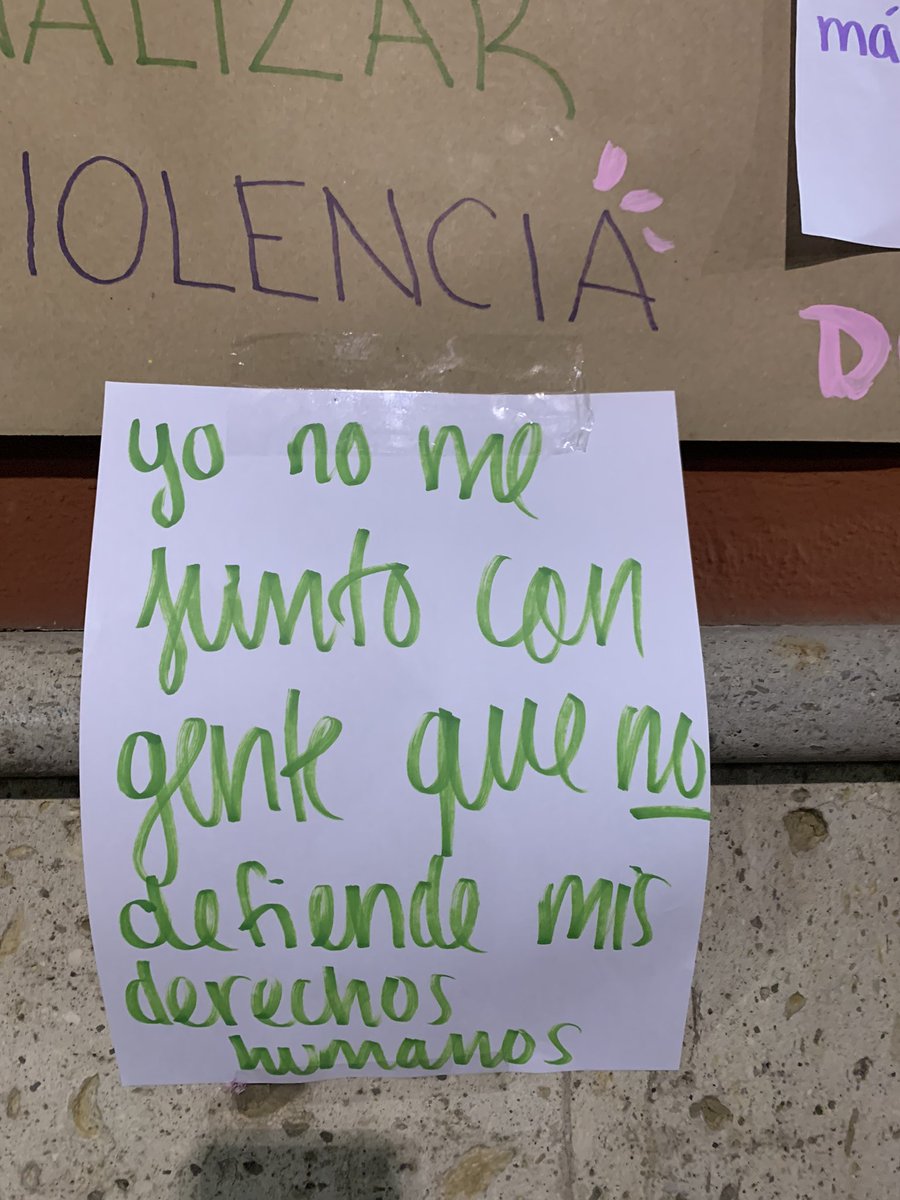 NALIZAR
IOLENCIA
má
D
yo no me
junto con
gente que no
defiende mis
derechos
humanos